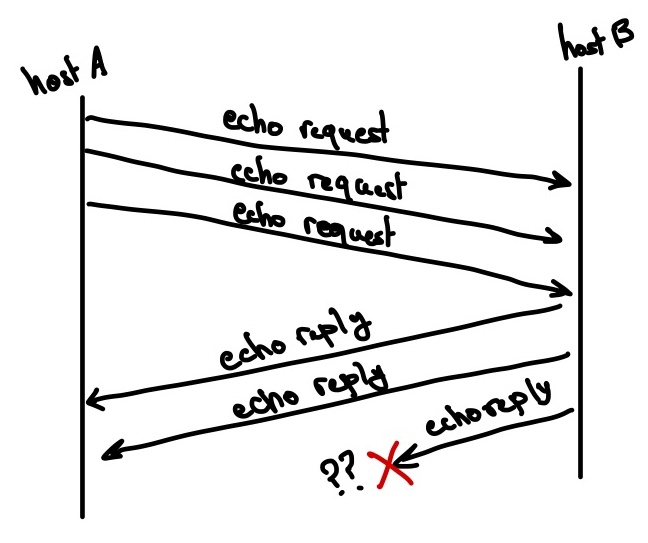 host A
host B
echo request
echo request
echo request
echo reply
echo reply
echo reply
??